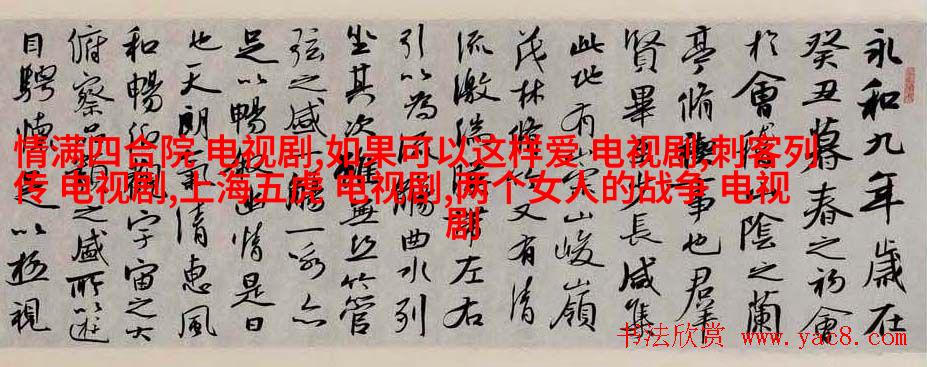 永和九年歲在
癸丑暮春之初會
於會稽山陰之蘭
亭脩禊事也群
賢畢至少長咸集
此地有崇山峻嶺
茂林脩竹又有清
流激湍暎帶左右
引以為流觴曲水列
坐其次雖無絲竹管
弦之盛一觴一詠亦
足以暢敘幽情是日
也天朗氣清惠風
和暢仰觀宇宙之大
俯察品類之盛所以遊
目騁懷足以極視
情满四合院 电视剧,如果可以这样爱 电视剧,刺客列
传 电视剧,上海五虎 电视剧,两个女人的战争 电视
剧
书法欣赏 www.yac8.com